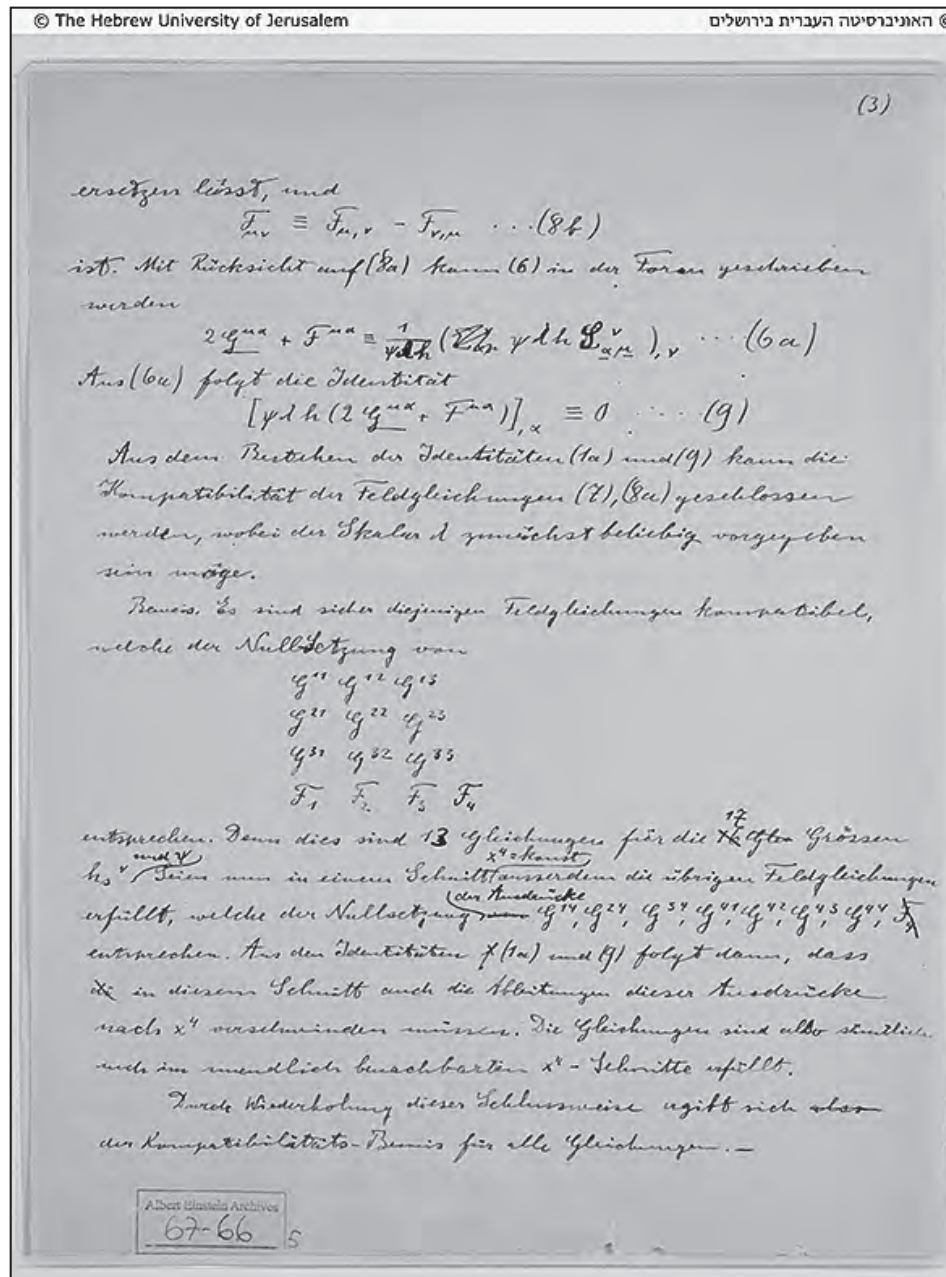 © The Hebrew University of Jerusalem
האוניברסיטה העברית בירושלים ©
(3)
ersetzen lässt, und
F_{μν} ≡ F_{μ,ν} - F_{ν,μ} ...(8b)
ist. Mit Rücksicht auf (8a) kann (6) in der Form geschrieben
werden
2 G^{μα} + F^{μα} ≡ 1/ψλh ( ψ λ h 𝔏^ν_{αμ}),ν ... (6a)
Aus (6a) folgt die Identität
[ψ λ h (2 G^{μα} + F^{μα})],α ≡ 0 .... (9)
Aus dem Bestehen der Identitäten (1a) und (9) kann die
Kompatibilität der Feldgleichungen (7), (8a) geschlossen
werden, wobei der Skalar λ zunächst beliebig vorgegeben
sein möge.
Beweis. Es sind sicher diejenigen Feldgleichungen kompatibel,
welche der Nullsetzung von
G^{11} G^{12} G^{13}
G^{21} G^{22} G^{23}
G^{31} G^{32} G^{33}
F_1 F_2 F_3 F_4
entsprechen. Denn dies sind 13 Gleichungen für die 17 Grössen
h_s^ν und ψ. Seien nun in einem Schnitt x^4 = konst ausserdem die übrigen Feldgleichungen
erfüllt, welche der Nullsetzung der Ausdrücke G^{14}, G^{24}, G^{34}, G^{41}, G^{42}, G^{43}, G^{44},
entsprechen. Aus den Identitäten (1a) und (9) folgt dann, dass
in diesem Schnitt auch die Ableitungen dieser Ausdrücke
nach x^4 verschwinden müssen. Die Gleichungen sind also sämtlich
auch im unendlich benachbarten x^4 - Schnitte erfüllt.
Durch Wiederholung dieser Schlussweise ergibt sich
der Kompatibilitäts-Beweis für alle Gleichungen. —
Albert Einstein Archives
67-66
5